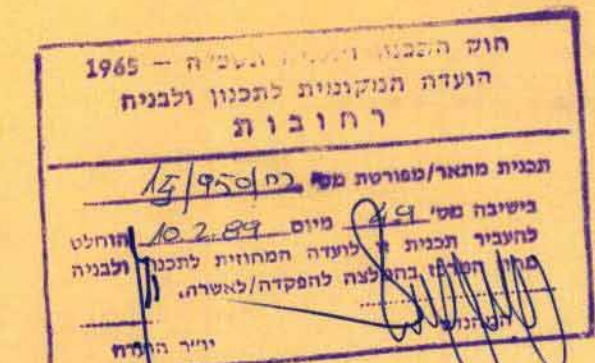 חוק התכנון והבניה תשכ"ה — 1965
הועדה המקומית לתכנון ולבניה
רחובות
תכנית מתאר/מפורטת מס' רח/950/15
בישיבה מס' 49 מיום 10.2.89 הוחלט
להעביר תכנית זו לועדה המחוזית לתכנון ולבניה
מחוז המרכז בהמלצה להפקדה/לאשרה.
המהנדס
יו"ר הועדה